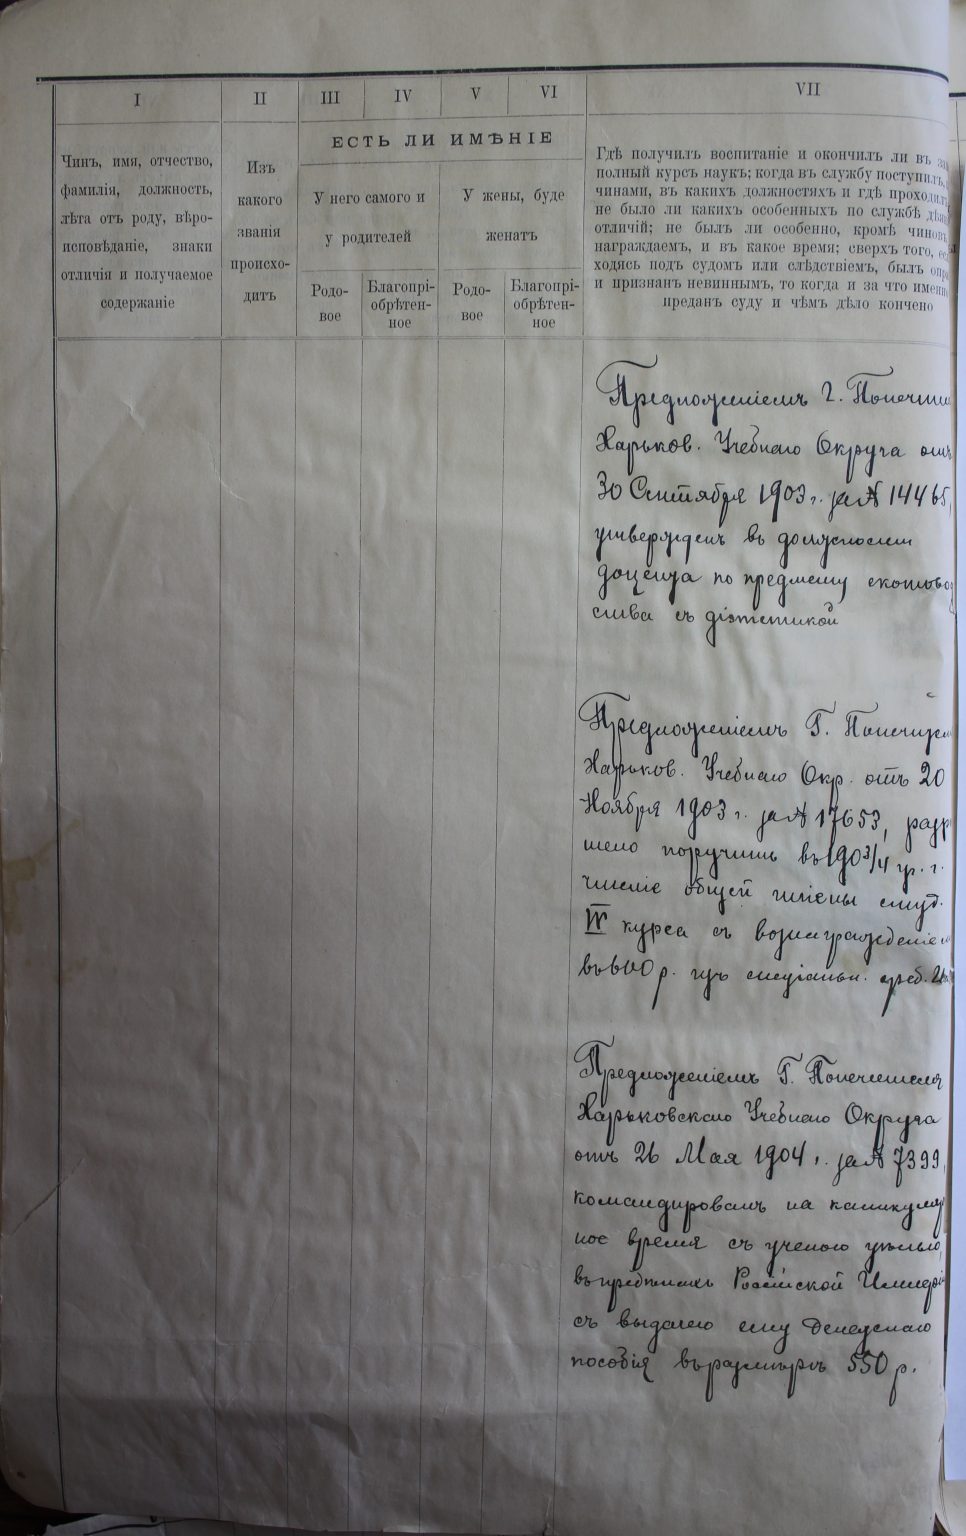 I II III IV V VI VII
ЕСТЬ ЛИ ИМѢНІЕ
Чинъ, имя, отчество,
фамилія, должность,
лѣта отъ роду, вѣро-
исповѣданіе, знаки
отличія и получаемое
содержаніе
Изъ
какого
званія
происхо-
дитъ
У него самого и
у родителей
У жены, буде
женатъ
Родо-
вое
Благопрі-
обрѣтен-
ное
Родо-
вое
Благопрі-
обрѣтен-
ное
Гдѣ получилъ воспитаніе и окончилъ ли въ за
полный курсъ наукъ; когда въ службу поступилъ,
чинами, въ какихъ должностяхъ и гдѣ проходилъ
не было ли какихъ особенныхъ по службѣ дѣя
отличій; не былъ ли особенно, кромѣ чиновъ,
награждаемъ, и въ какое время; сверхъ того, ес
ходясь подъ судомъ или слѣдствіемъ, былъ опр
и признанъ невиннымъ, то когда и за что именно
преданъ суду и чѣмъ дѣло кончено
Предложеніемъ Г. Попечит
Харьков. Учебнаго Округа отъ
30 Сентября 1903 г. за № 14465,
утвержденъ въ должности
доцента по предмету скотовод
ства съ діэтетикой
Предложеніемъ Г. Попечител
Харьков. Учебнаго Окр. отъ 20
Ноября 1903 г. за № 17653, разр
шено поручить въ 1903/4 уч. г.
чтеніе общей гигіены студ.
IV курса съ вознагражденіем
въ 600 р. изъ спеціальн. сред.
Предложеніемъ Г. Попечителя
Харьковскаго Учебнаго Округа
отъ 26 Мая 1904 г. за № 7399,
командированъ на каникуляр
ное время съ ученою цѣлью,
въ предѣлахъ Россійской Имперіи
съ выдачею ему денежнаго
пособія въ размѣрѣ 550 р.